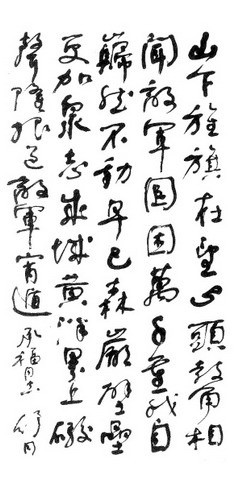 山下旌旗在望山頭鼓角相
聞敵軍圍困萬千重我自
巋然不動早已森嚴壁壘
更加衆志成城黃洋界上礮
聲隆報道敵軍宵遁 承福同志 舒同